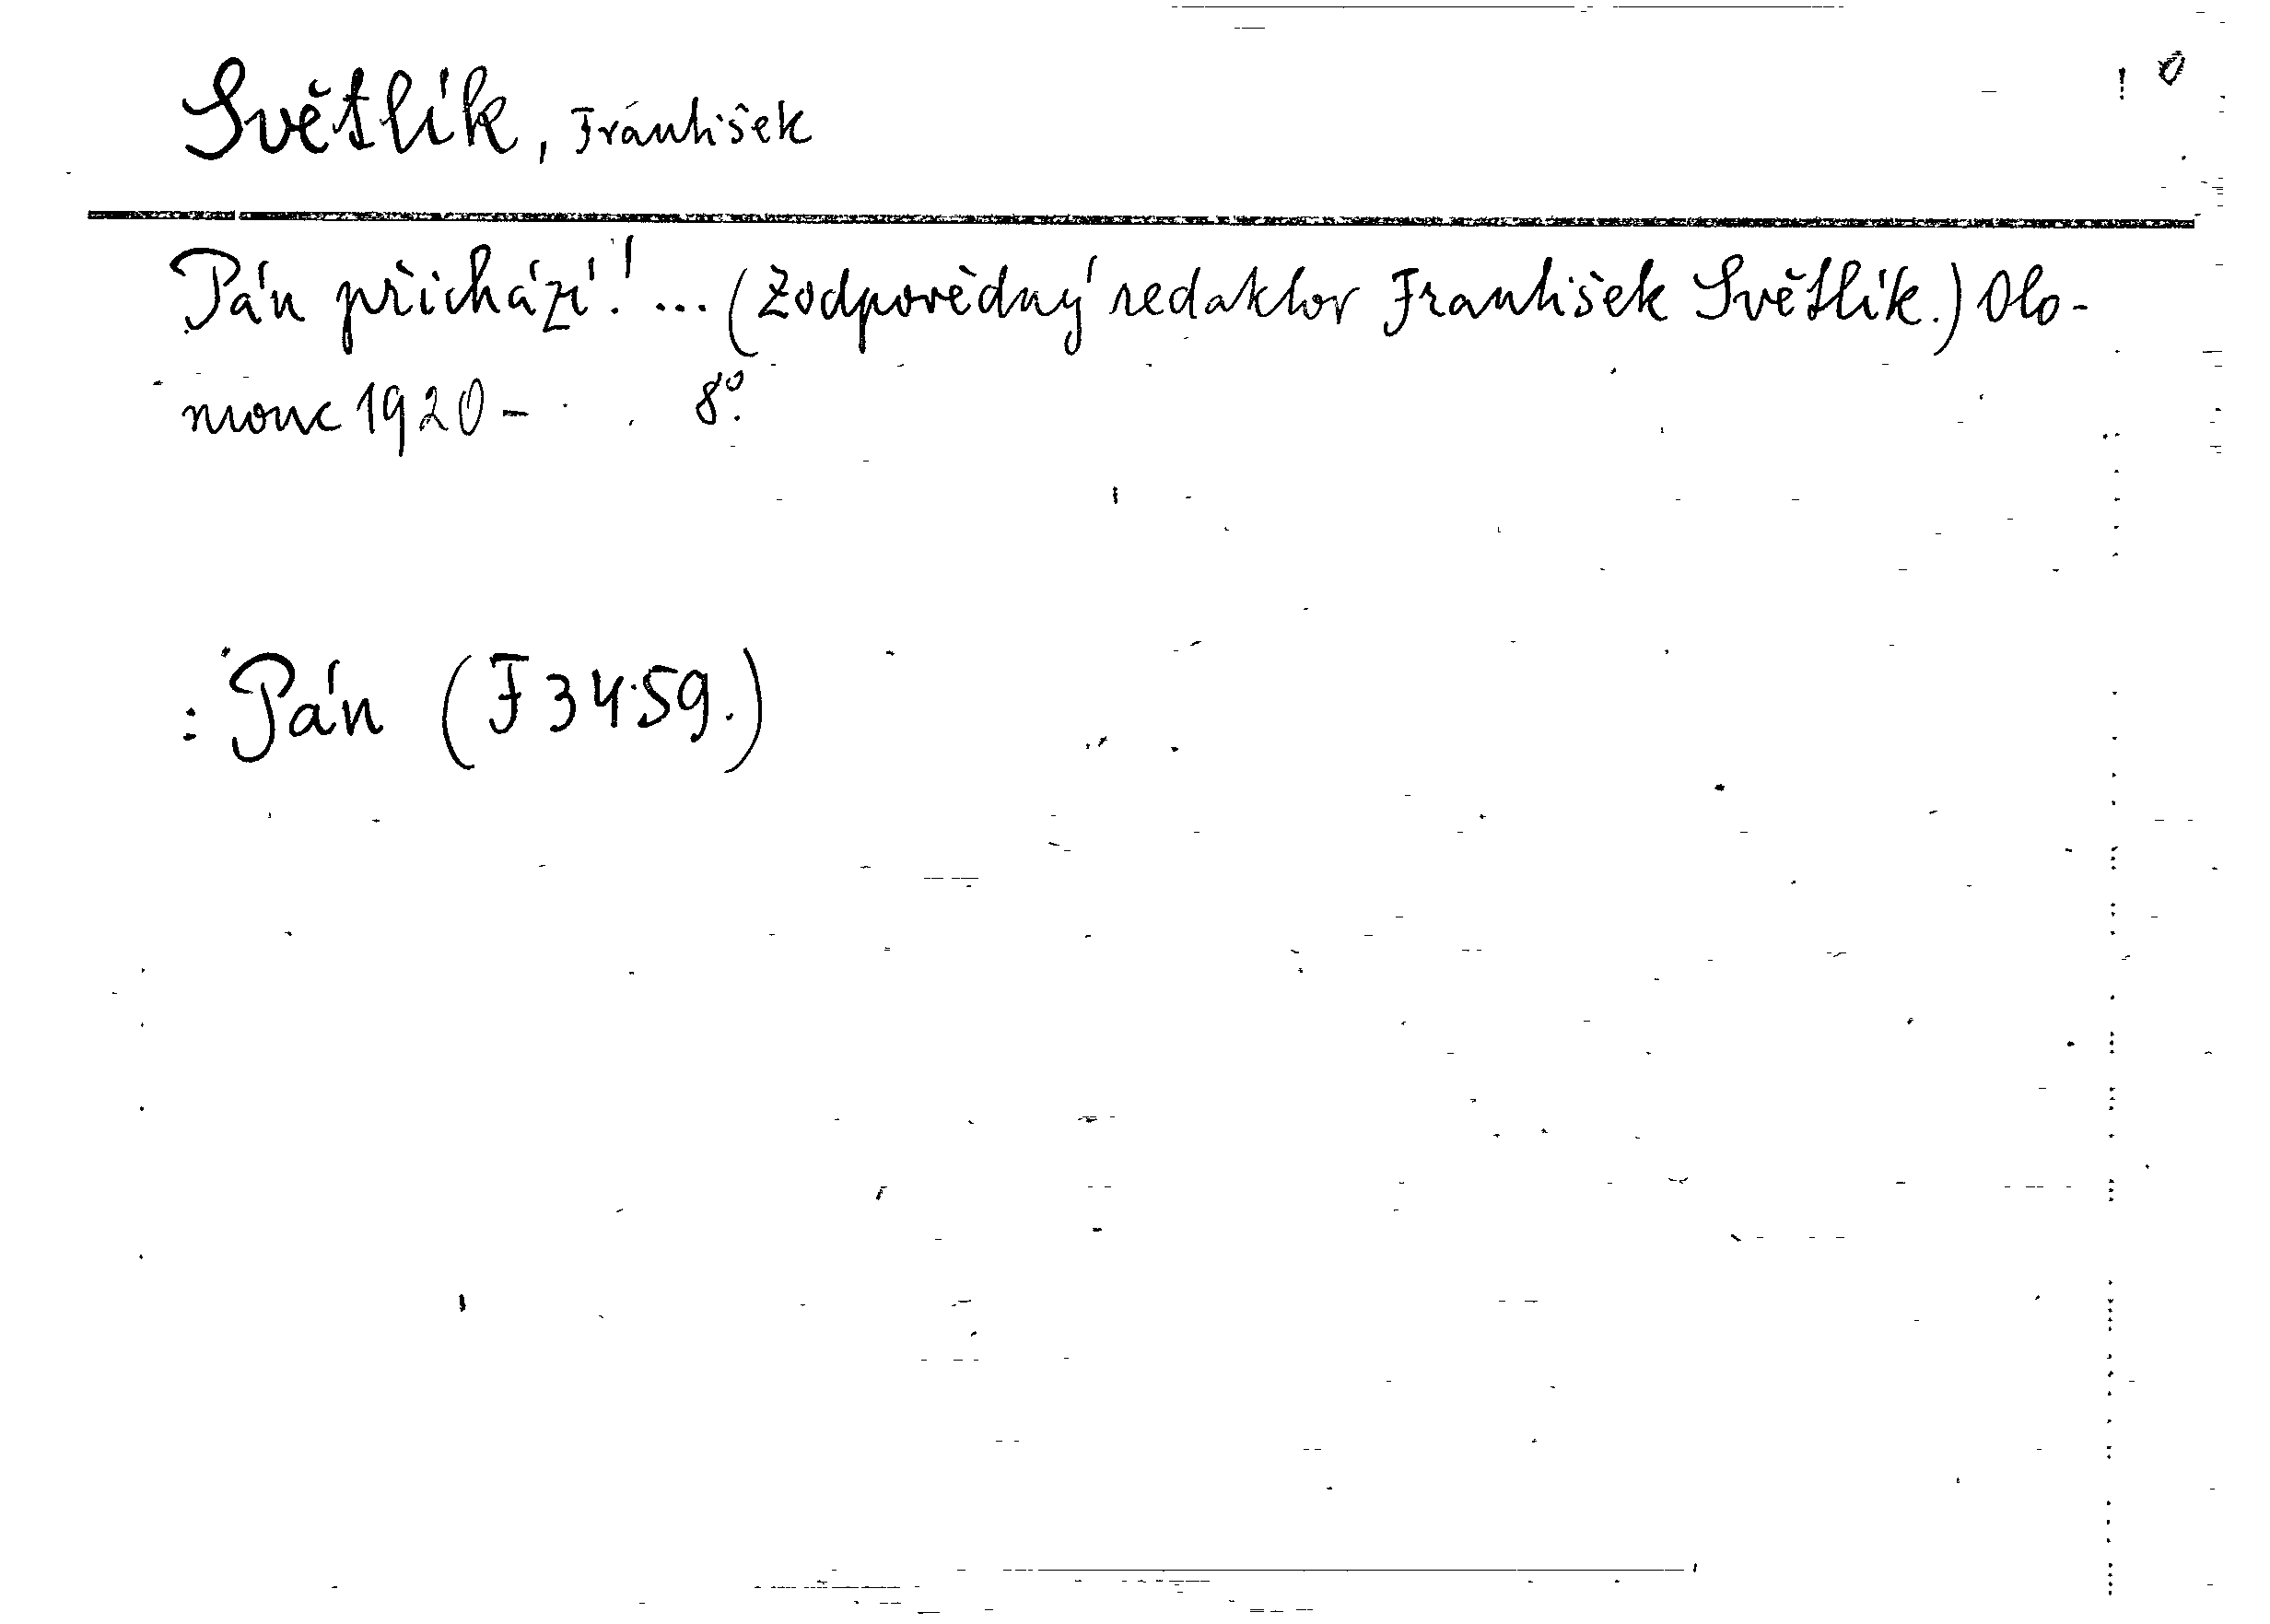 Světlík, František
Pán přichází! ... (Zodpovědný redaktor František Světlík.) Olo-
mouc 1920 - 8º.
: Pán (F 3459.)